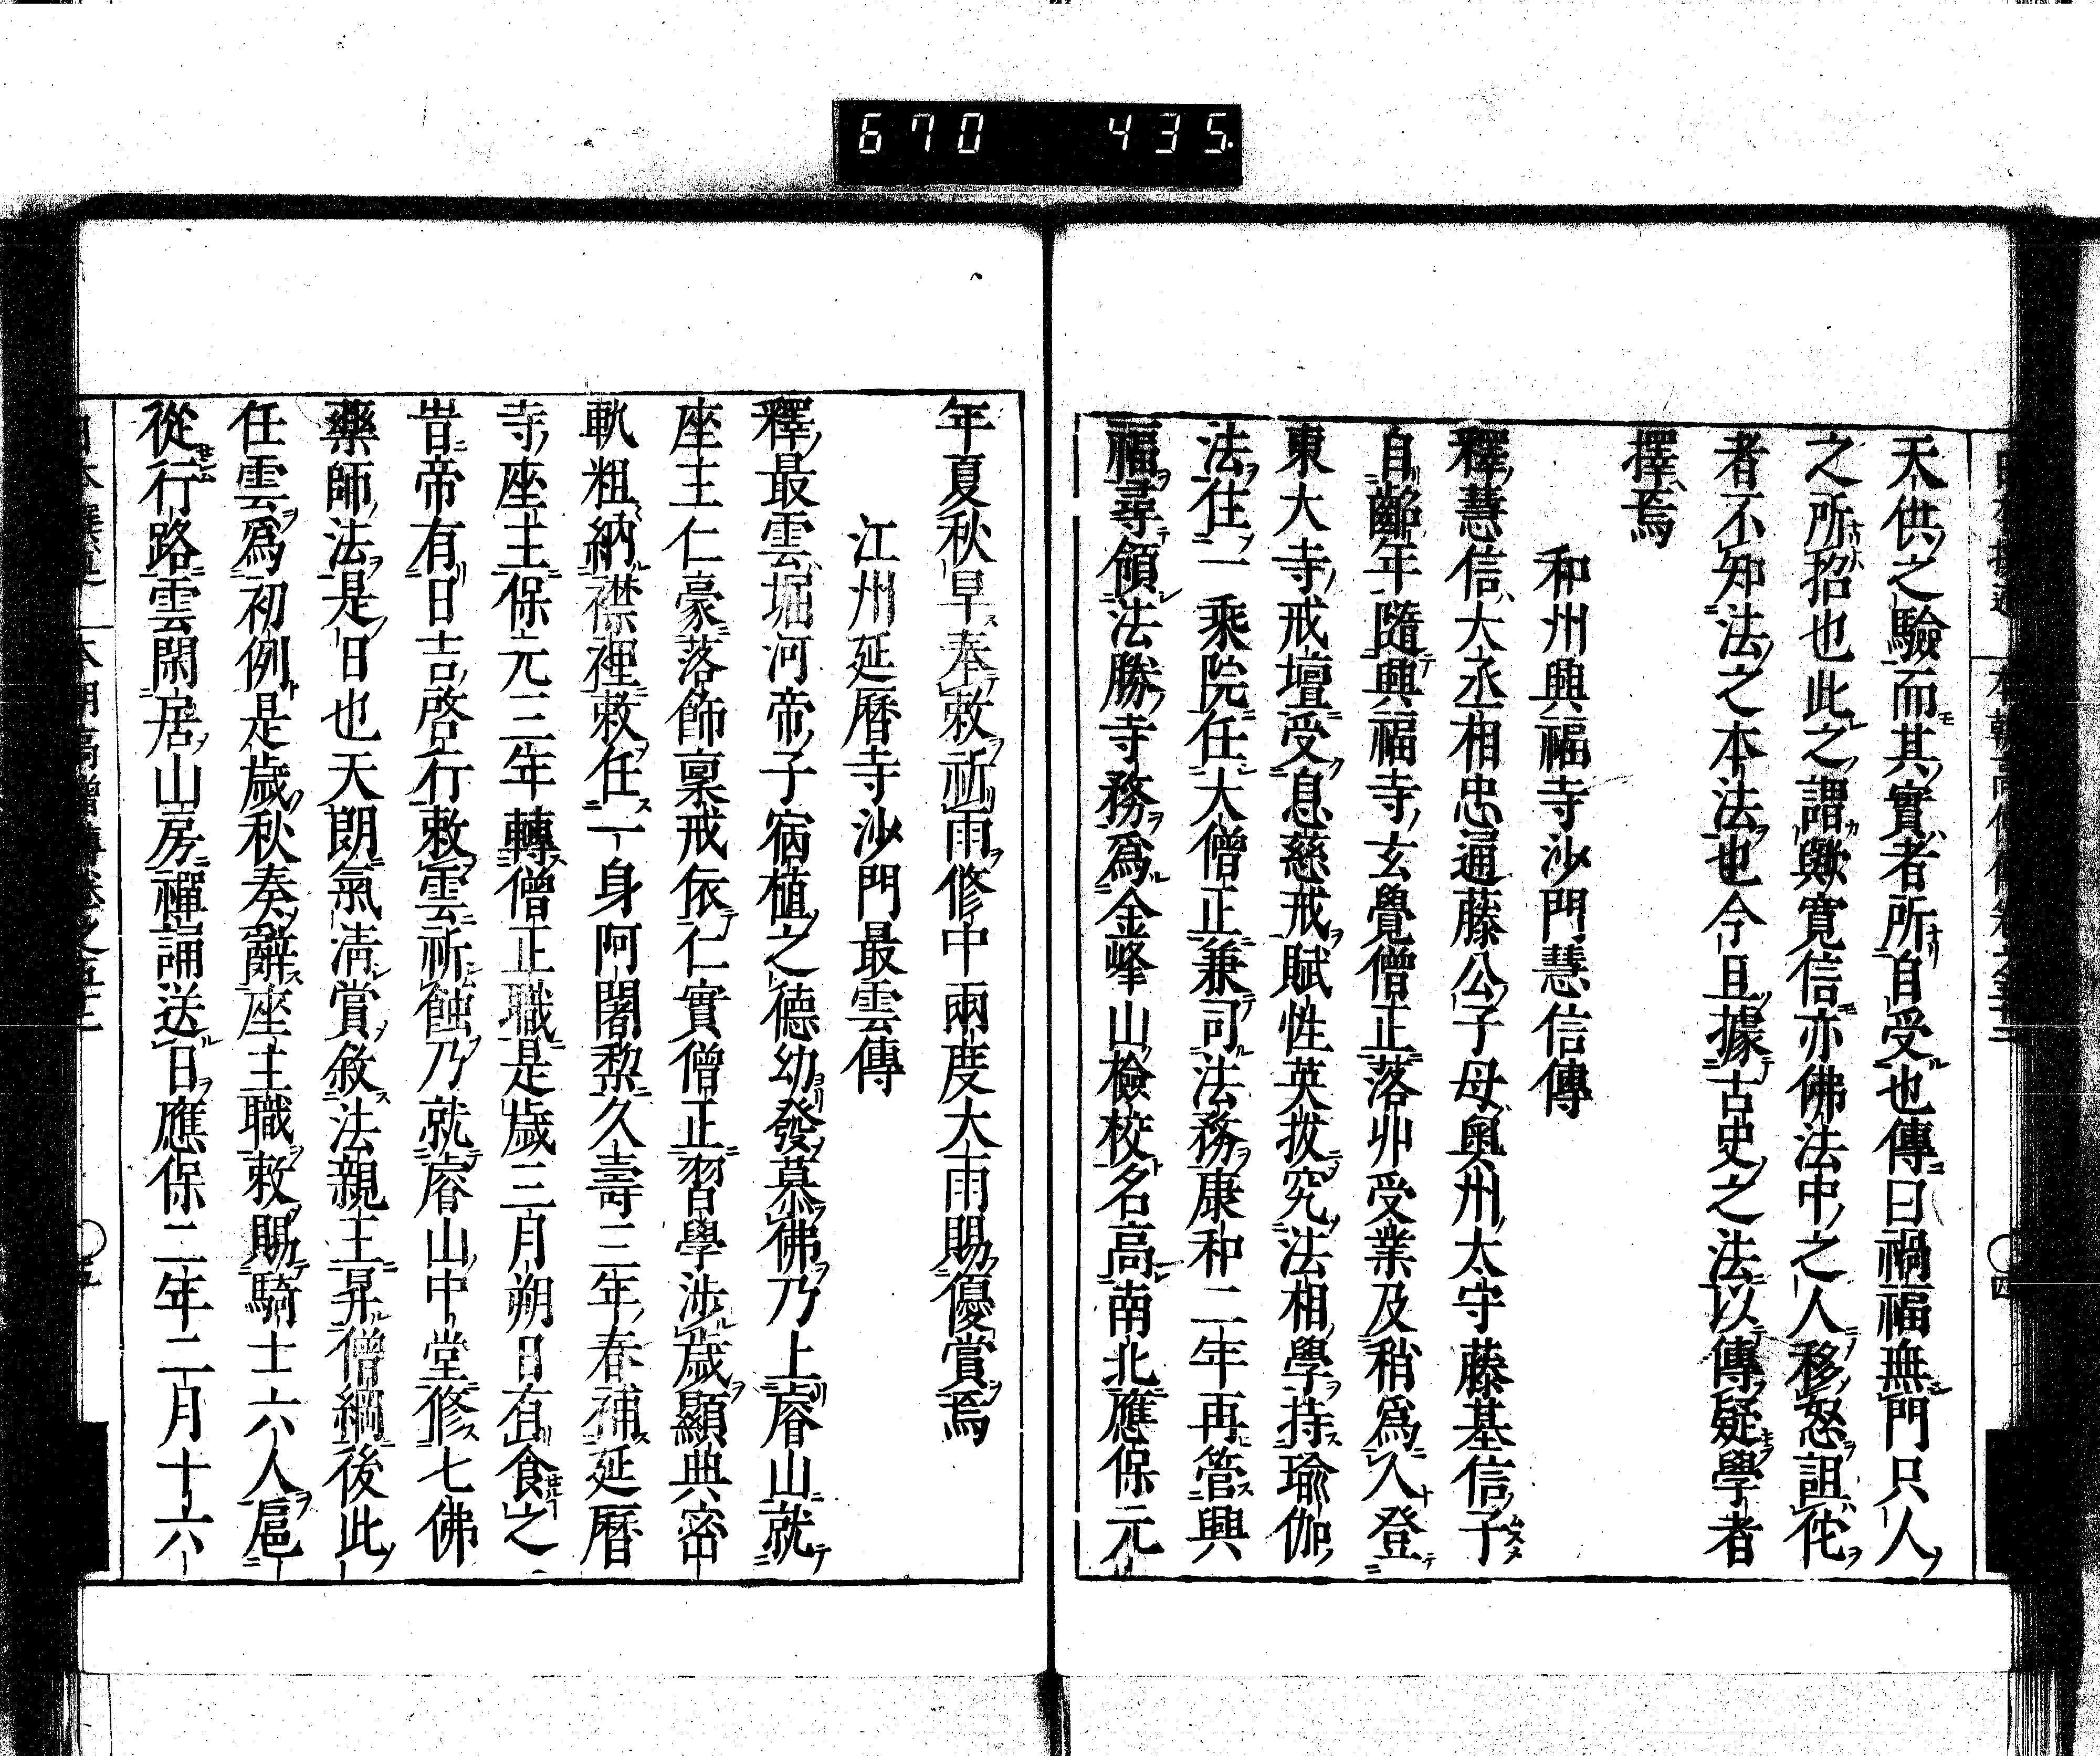 670 435
天供之驗而其實者所自受也傳曰禍福無門只人
之所招也此之謂歟寬信亦佛法中之人移怒詛侘
者不知法之本法也今且據古史之法以傳疑學者
擇焉
和州興福寺沙門慧信傳
釋慧信大丞相忠通藤公子母奧州太守藤基信子
自齠年隨興福寺玄覺僧正落丱受業及稍爲人登
東大寺戒壇受息慈戒賦性英拔究法相學持瑜伽
法住一乘院任大僧正兼司法務康和二年再管興
福尋領法勝寺務爲金峰山檢校名高南北應保元
年夏秋旱奉敕祈雨修中兩度大雨賜優賞焉
江州延曆寺沙門最雲傳
釋最雲堀河帝子宿植之德幼發慕佛乃上睿山就
座主仁豪落飾稟戒依仁實僧正習學涉歲顯典密
軌粗納襟裡敕任一身阿闍梨久壽三年春補延曆
寺座主保元三年轉僧正職是歲三月朔日有食之
昔帝有日吉啓行敕雲祈蝕乃就睿山中堂修七佛
藥師法是日也天朗氣清賞敘法親王昇僧綱後此
任雲爲初例是歲秋奏辭座主職敕賜騎士六人扈
從行路雲閑居山房禪誦送日應保二年二月十六